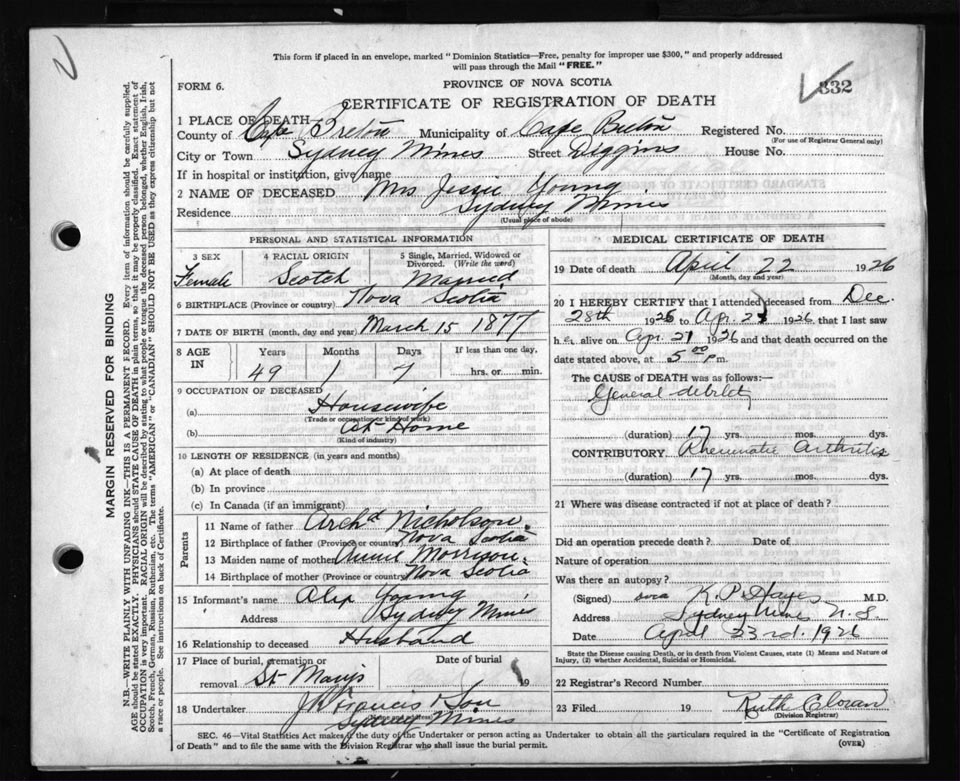 This form if placed in an envelope, marked "Dominion Statistics—Free, penalty for improper use $300," and properly addressed
will pass through the Mail "FREE."
332
FORM 6.
PROVINCE OF NOVA SCOTIA
CERTIFICATE OF REGISTRATION OF DEATH
1 PLACE OF DEATH—
County of Cape Breton Municipality of Cape Breton Registered No.
(For use of Registrar General only)
City or Town Sydney Mines Street Diggins House No.
If in hospital or institution, give name
2 NAME OF DECEASED Mrs Jessie Young
Residence Sydney Mines
(Usual place of abode)
PERSONAL AND STATISTICAL INFORMATION
3 SEX 4 RACIAL ORIGIN 5 Single, Married, Widowed or Divorced. (Write the word)
Female Scotch Married
6 BIRTHPLACE (Province or country) Nova Scotia
7 DATE OF BIRTH (month, day and year) March 15 1877
8 AGE IN Years Months Days If less than one day,
49 1 7 hrs. or min.
9 OCCUPATION OF DECEASED
(a) Housewife
(Trade or occupation or kind of work)
(b) At Home
(Kind of industry)
10 LENGTH OF RESIDENCE (in years and months)
(a) At place of death
(b) In province
(c) In Canada (if an immigrant)
Parents
11 Name of father Archd Nicholson.
12 Birthplace of father (Province or country) Nova Scotia
13 Maiden name of mother Annie Morrison.
14 Birthplace of mother (Province or country) Nova Scotia
15 Informant's name Alex Young
Address Sydney Mines
16 Relationship to deceased Husband
17 Place of burial, cremation or removal St Marys Date of burial 19
18 Undertaker Francis & Son
Sydney Mines
MEDICAL CERTIFICATE OF DEATH
19 Date of death April 22 1926
(Month, day and year)
20 I HEREBY CERTIFY that I attended deceased from Dec.
28th 1925 to Apr. 1926 that I last saw
h alive on Apr 21 1926 and that death occurred on the
date stated above, at 5 00 P.m.
The CAUSE of DEATH was as follows:—
General debility
(duration) 17 yrs. mos. dys.
CONTRIBUTORY Rheumatic Arthritis
(duration) 17 yrs. mos. dys.
21 Where was disease contracted if not at place of death?
Did an operation precede death? Date of
Nature of operation
Was there an autopsy?
(Signed) K. P. Hayes M.D.
Address Sydney Mines N. S.
Date April 23rd. 1926
State the Disease causing Death, or in death from Violent Causes, state (1) Means and Nature of
Injury, (2) whether Accidental, Suicidal or Homicidal.
22 Registrar's Record Number
23 Filed 19 Ruth Cloran
(Division Registrar)
SEC. 46—Vital Statistics Act makes it the duty of the Undertaker or person acting as Undertaker to obtain all the particulars required in the "Certificate of Registration
of Death" and to file the same with the Division Registrar who shall issue the burial permit.
(OVER)
MARGIN RESERVED FOR BINDING
N.B.—WRITE PLAINLY WITH UNFADING INK—THIS IS A PERMANENT RECORD. Every item of information should be carefully supplied.
AGE should be stated EXACTLY. PHYSICIANS should STATE CAUSE OF DEATH in plain terms, so that it may be properly classified. Exact statement of
OCCUPATION is very important. RACIAL ORIGIN will be described by stating to what people or tongue the deceased person belonged, whether English, Irish,
Scotch, French, German, Russian, Ruthenian, etc. The terms "AMERICAN" or "CANADIAN" SHOULD NOT BE USED as they express citizenship but not
a race or people. See instructions on back of Certificate.